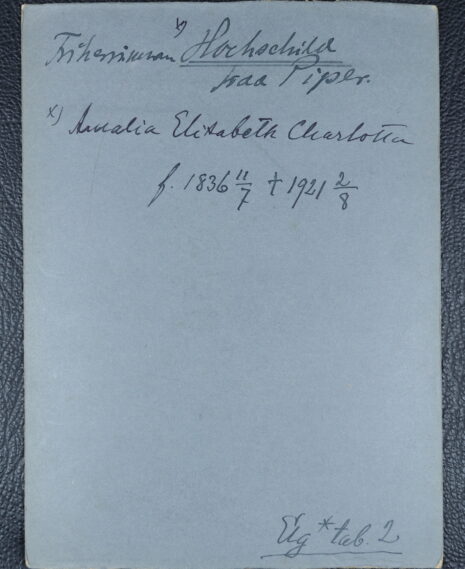 Friherrinnan x) Hochschild
född Piper.
x) Amalia Elisabeth Charlotta
f. 1836 11/7 † 1921 2/8
Elg * tab. 2